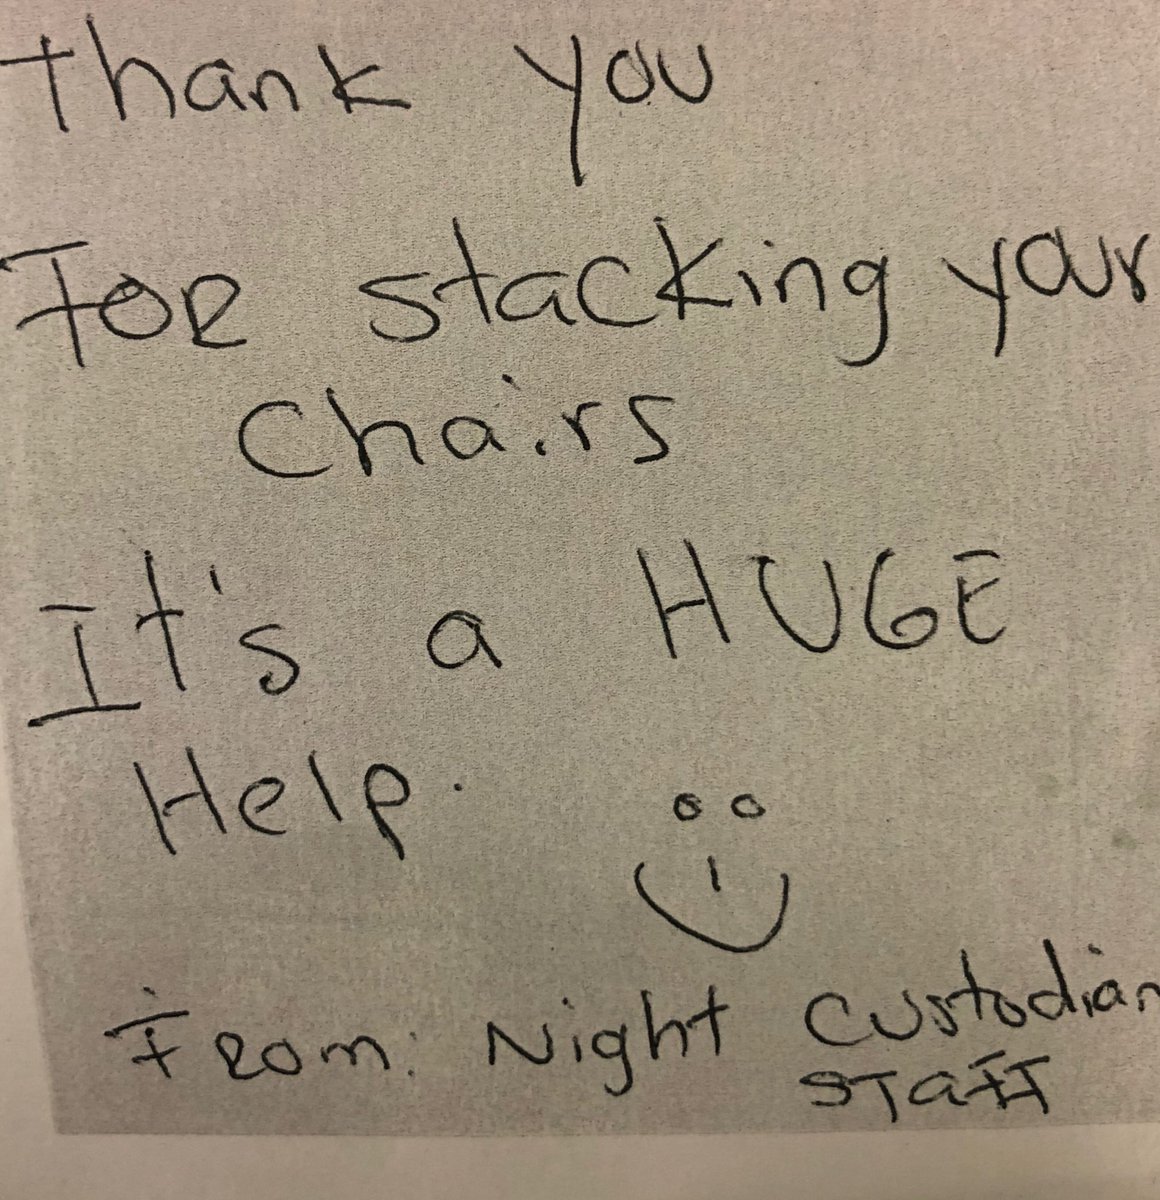 Thank you
For stacking your
Chairs
It's a HUGE
Help.
From: Night Custodian
Staff